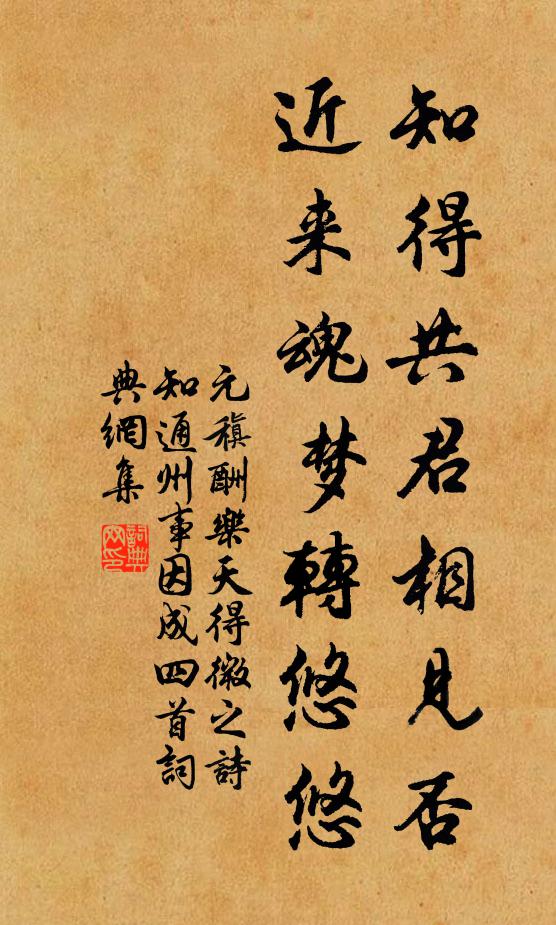 知得共君相見否
近来魂梦轉悠悠
元稹酬樂天得微之詩
知通州事因成四首詞
典網集
詞典网印